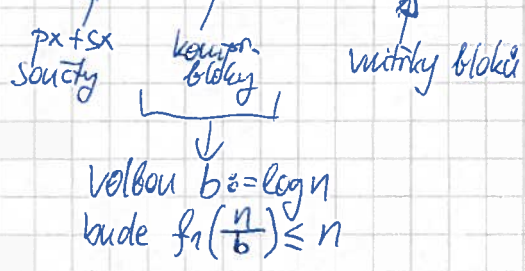 px + sx
součty
kompr.
bloky
vnitřky bloků
volbou b := log n
bude f₁(n/b) ≤ n